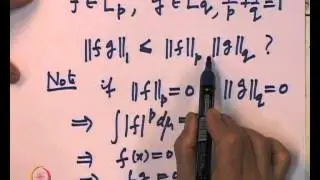 f ∈ L_p, g ∈ L_q, 1/p + 1/q = 1
‖fg‖_1 ≤ ‖f‖_p ‖g‖_q ?
Note if ‖f‖_p = 0 ‖g‖_q = 0
⇒ ∫|f|^p dμ =
⇒ f(x) = 0